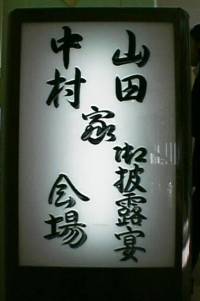 山田
中村
家
御披露宴
会場